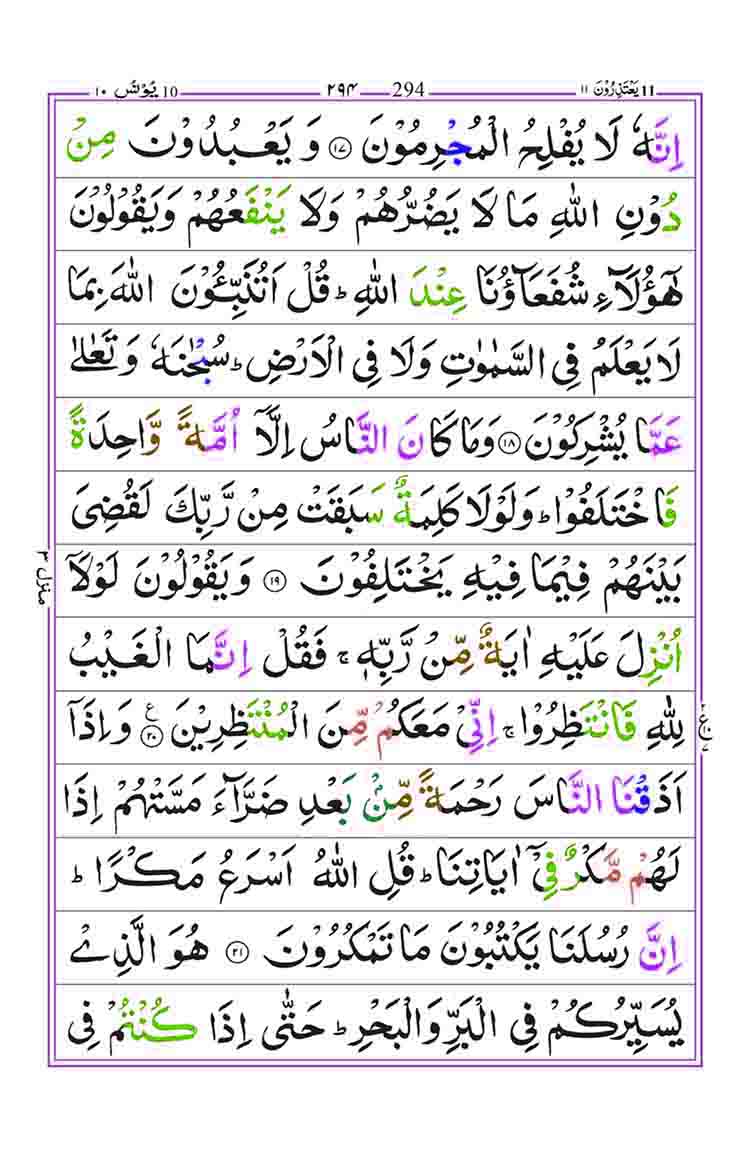 11 یَعْتَذِرُوْنَ ١١ 294 ٢٩٤ 10 یُوْنُس ١٠
اِنَّهٗ لَا یُفْلِحُ الْمُجْرِمُوْنَ ﴿١٧﴾ وَ یَعْبُدُوْنَ مِنْ
دُوْنِ اللّٰهِ مَا لَا یَضُرُّهُمْ وَلَا یَنْفَعُهُمْ وَیَقُوْلُوْنَ
هٰۤؤُلَآءِ شُفَعَآؤُنَا عِنْدَ اللّٰهِ ؕ قُلْ اَتُنَبِّـُٔوْنَ اللّٰهَ بِمَا
لَا یَعْلَمُ فِی السَّمٰوٰتِ وَلَا فِی الْاَرْضِ ؕ سُبْحٰنَهٗ وَتَعٰلٰی
عَمَّا یُشْرِكُوْنَ ﴿١٨﴾ وَمَا كَانَ النَّاسُ اِلَّاۤ اُمَّةً وَّاحِدَةً
فَاخْتَلَفُوْا ؕ وَلَوْلَا كَلِمَةٌ سَبَقَتْ مِنْ رَّبِّكَ لَقُضِیَ
بَیْنَهُمْ فِیْمَا فِیْهِ یَخْتَلِفُوْنَ ﴿١٩﴾ وَیَقُوْلُوْنَ لَوْلَاۤ
اُنْزِلَ عَلَیْهِ اٰیَةٌ مِّنْ رَّبِّهٖ ۚ فَقُلْ اِنَّمَا الْغَیْبُ
لِلّٰهِ فَانْتَظِرُوْا ۚ اِنِّیْ مَعَكُمْ مِّنَ الْمُنْتَظِرِیْنَ ﴿٢٠﴾ ع وَاِذَاۤ
اَذَقْنَا النَّاسَ رَحْمَةً مِّنْۢ بَعْدِ ضَرَّآءَ مَسَّتْهُمْ اِذَا
لَهُمْ مَّكْرٌ فِیْۤ اٰیَاتِنَا ؕ قُلِ اللّٰهُ اَسْرَعُ مَكْرًا ؕ
اِنَّ رُسُلَنَا یَكْتُبُوْنَ مَا تَمْكُرُوْنَ ﴿٢١﴾ هُوَ الَّذِیْ
یُسَیِّرُكُمْ فِی الْبَرِّ وَالْبَحْرِ ؕ حَتّٰۤی اِذَا كُنْتُمْ فِی
منزل ٣